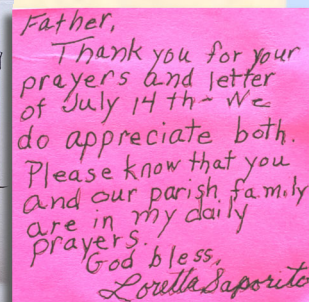 Father,
Thank you for your
prayers and letter
of July 14th - We
do appreciate both.
Please know that you
and our parish family
are in my daily
prayers.
God bless,
Loretta Saporito